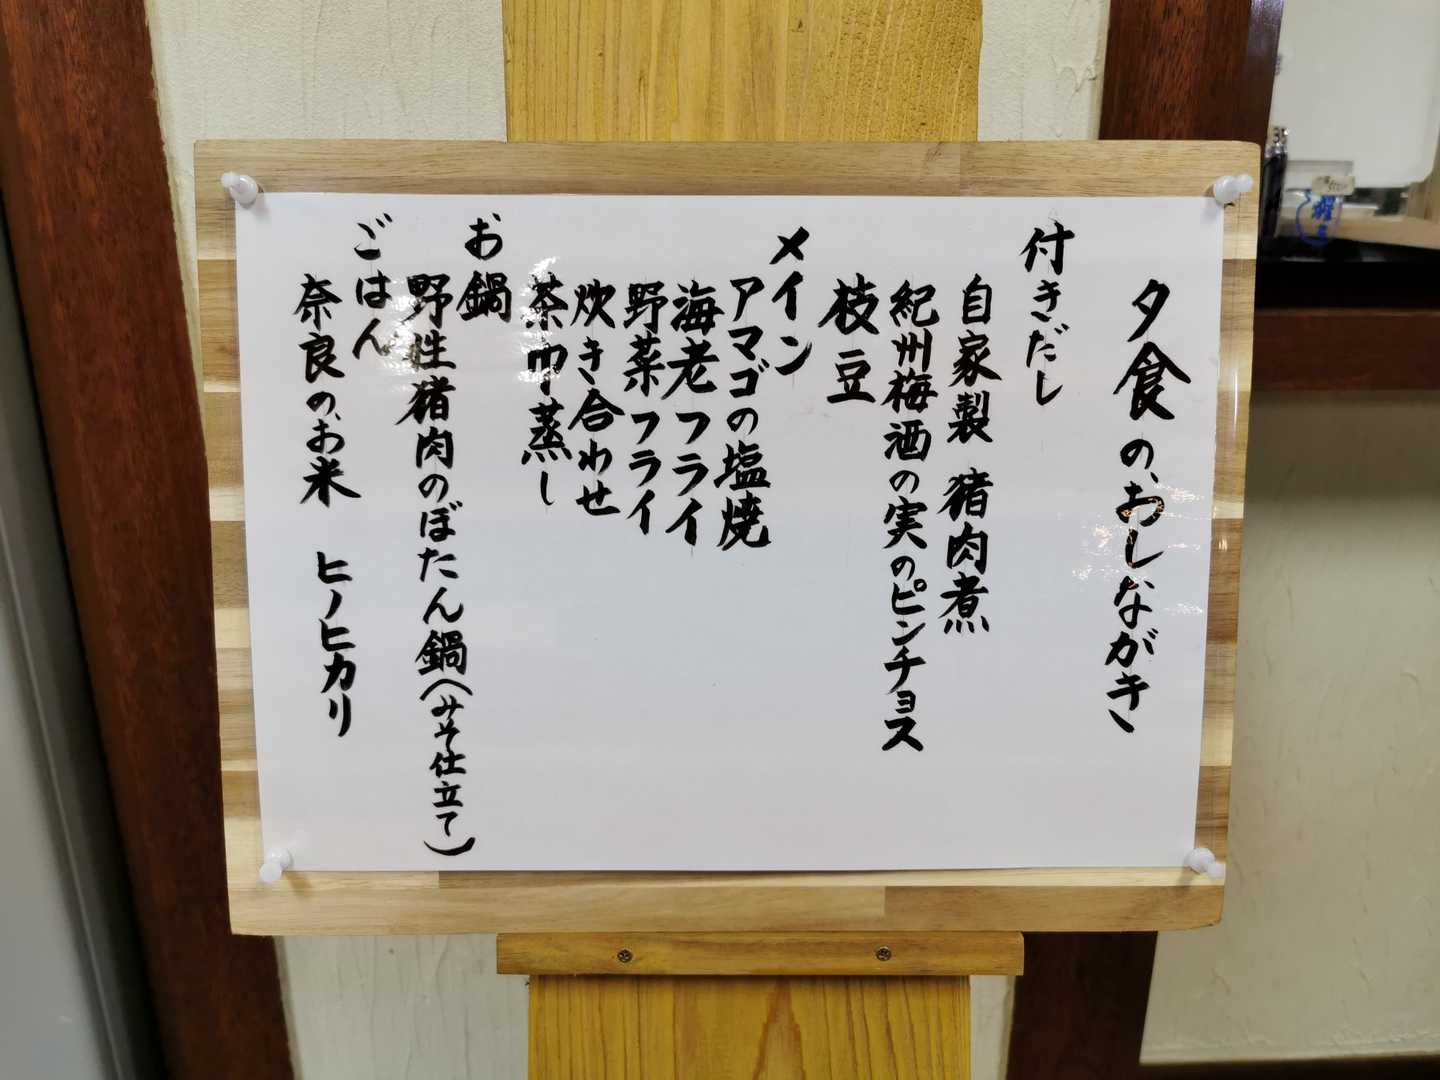 夕食のおしながき
付きだし
自家製 猪肉煮
紀州梅酒の実のピンチョス
枝豆
メイン
アマゴの塩焼
海老フライ
野菜フライ
炊き合わせ
茶巾蒸し
お鍋
野性猪肉のぼたん鍋(みそ仕立て)
ごはん
奈良の、お米 ヒノヒカリ